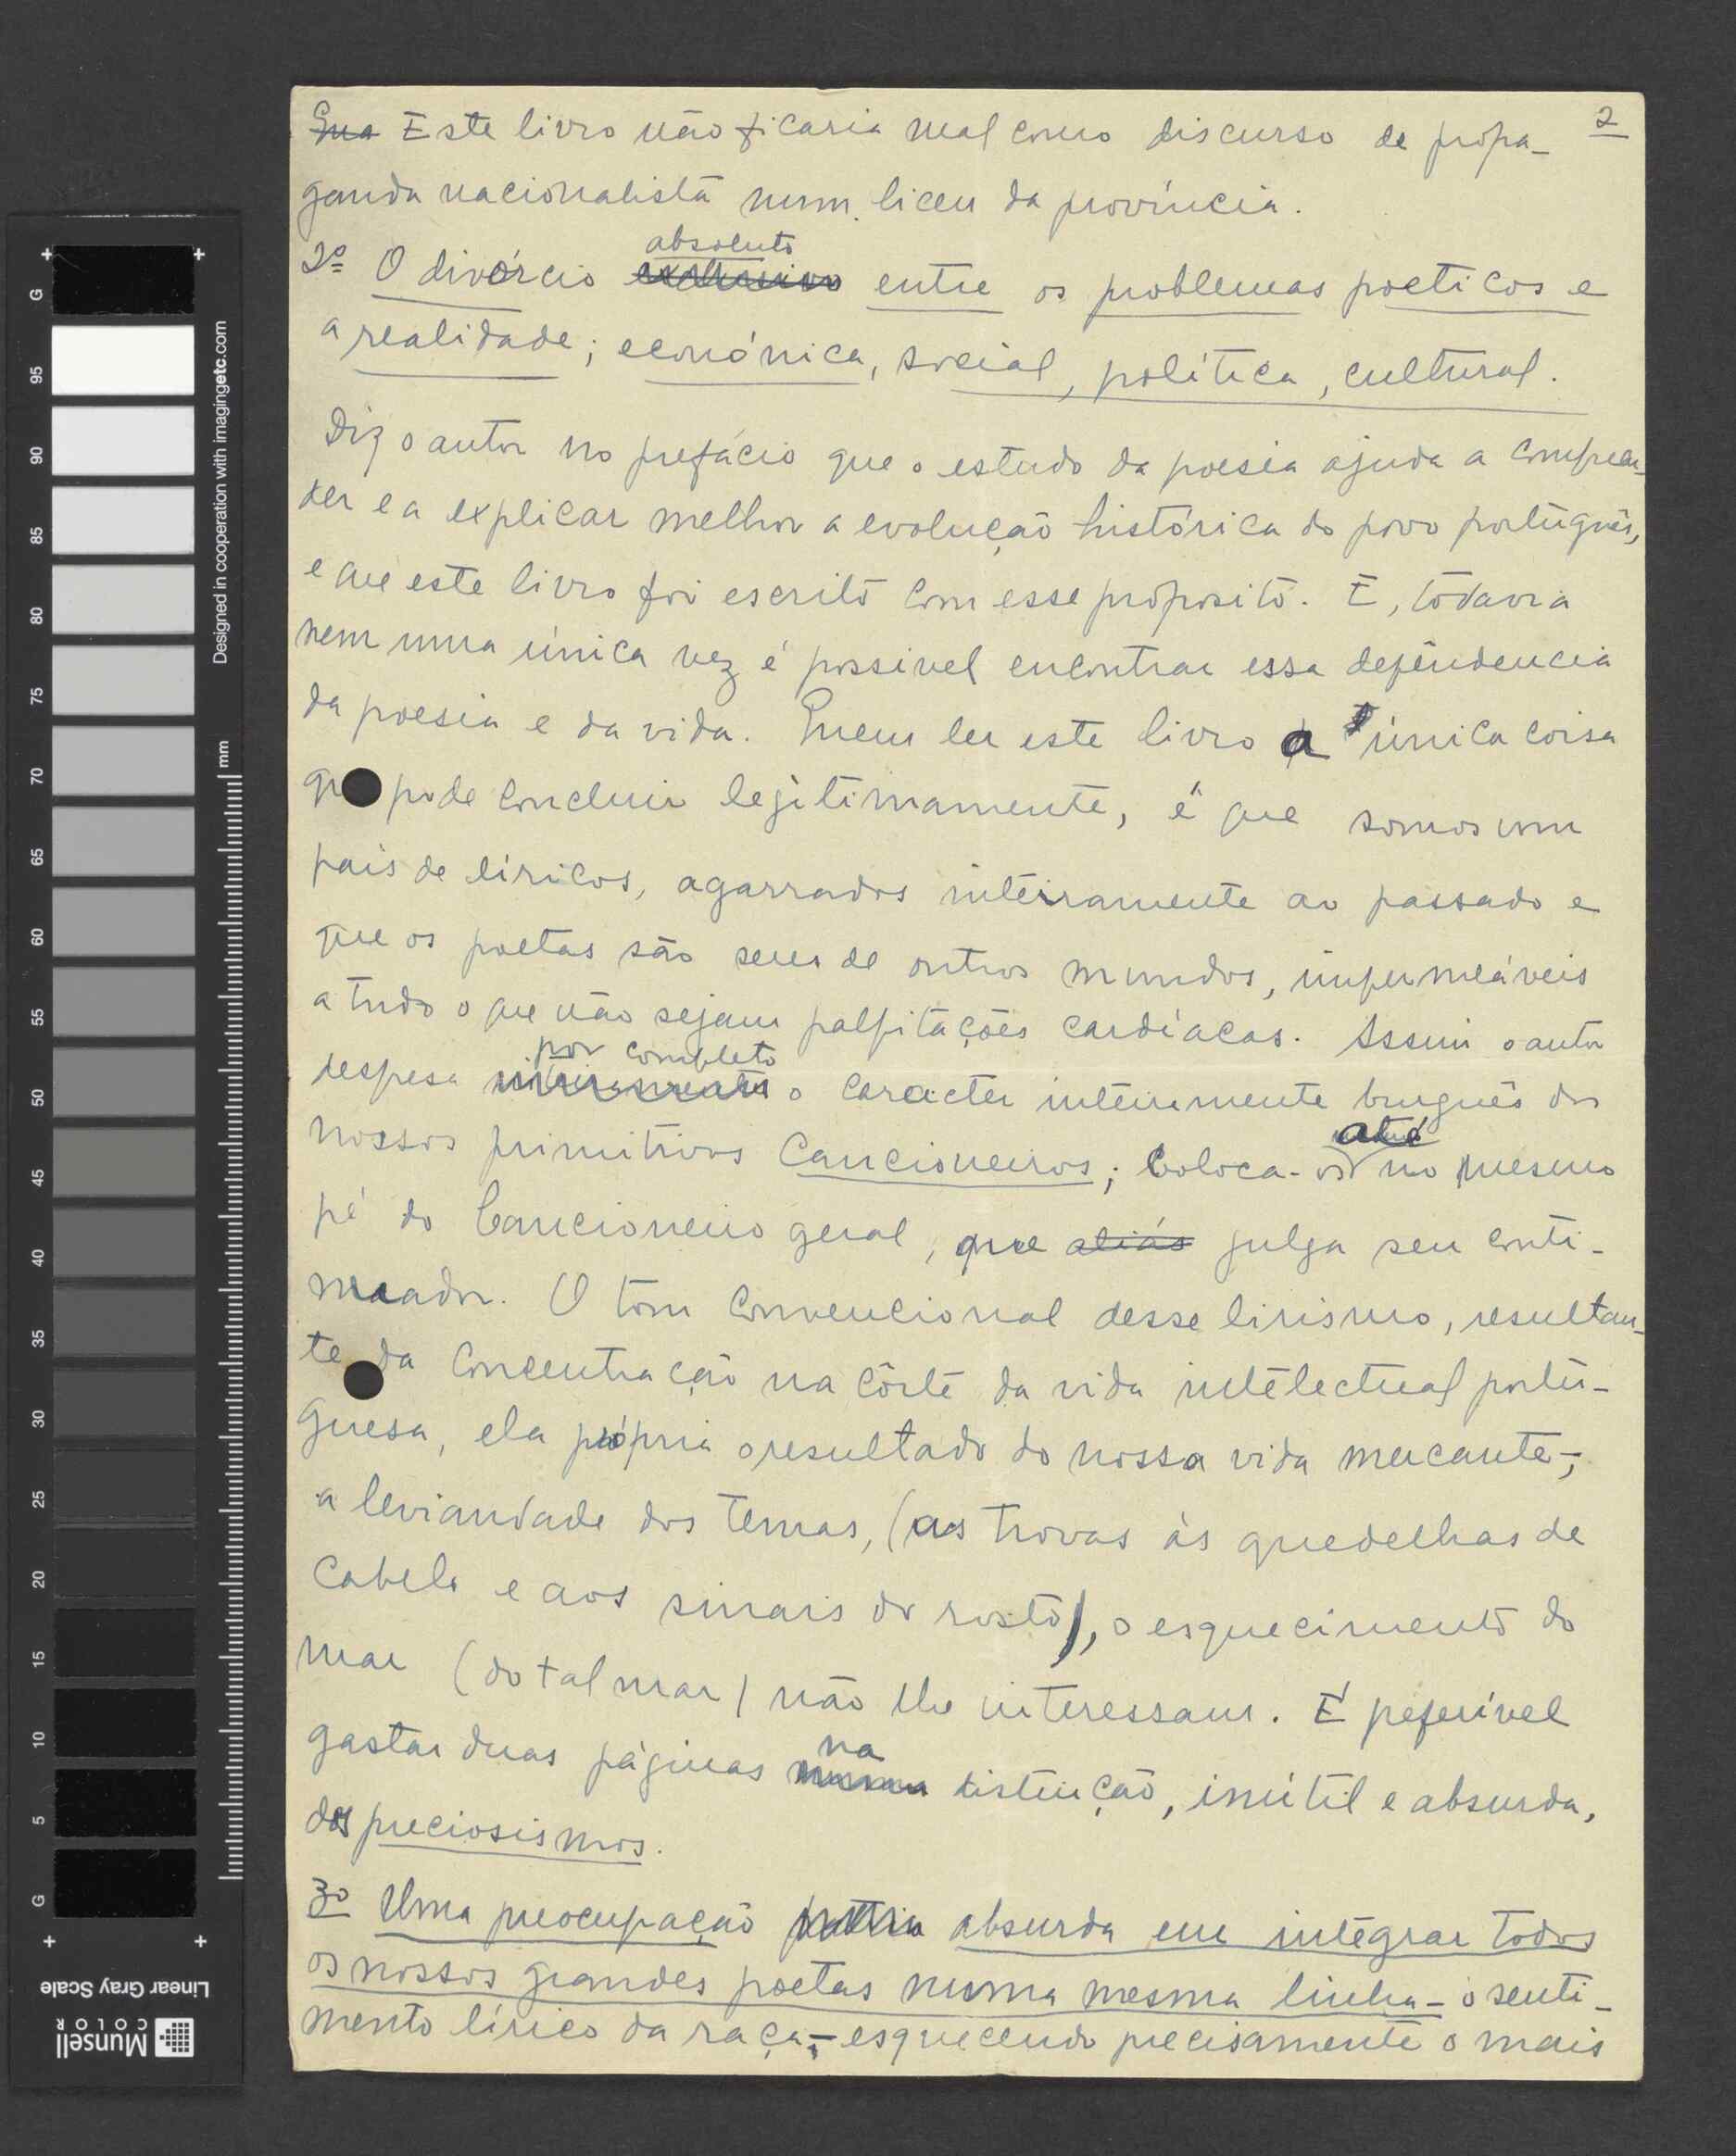 2
Sua Este livro não ficaria mal como discurso de propa-
ganda nacionalista num liceu da província.
absoluto
2º O divórcio exclusivo entre os problemas poeticos e
a realidade; económica, social, política, cultural.
Diz o autor no prefácio que o estudo da poesia ajuda a compreen-
der e a explicar melhor a evolução histórica do povo português,
e que este livro foi escrito com esse proposito. E, todavia
nem uma única vez é possivel encontrar essa dependencia
da poesia e da vida. Quem ler este livro a única coisa
q pode concluir legitimamente, é que somos um
pais de líricos, agarrados inteiramente ao passado e
que os poetas são seres de outros mundos, impermeáveis
a tudo o que não sejam palpitações cardíacas. Assim o autor
por completo
despesa inteiramente o caracter inteiramente burguês dos
até
nossos primitivos Cancioneiros; coloca-os no mesmo
pé do Cancioneiro geral, que aliás julga seu conti-
nuador. O tom convencional desse lirismo, resultan-
te da concentração na côrte da vida intelectual portu-
guesa, ela própria o resultado do nossa vida mercante-;
a leviandade dos temas, (as trovas às guedelhas de
cabelo e aos sinais do rosto), o esquecimento do
mar (do tal mar) não lhe interessam. É preferível
na
gastar duas páginas numa distinção, inútil e absurda,
dos preciosismos.
3º Uma preocupação absurda em integrar todos
os nossos grandes poetas numa mesma linha - o senti-
mento lírico da raça, - esquecendo precisamente o mais
Designed in cooperation with imagingetc.com
mm
G
95
90
85
80
75
70
65
60
55
50
45
40
35
30
25
20
15
10
5
G
Linear Gray Scale
Munsell
COLOR